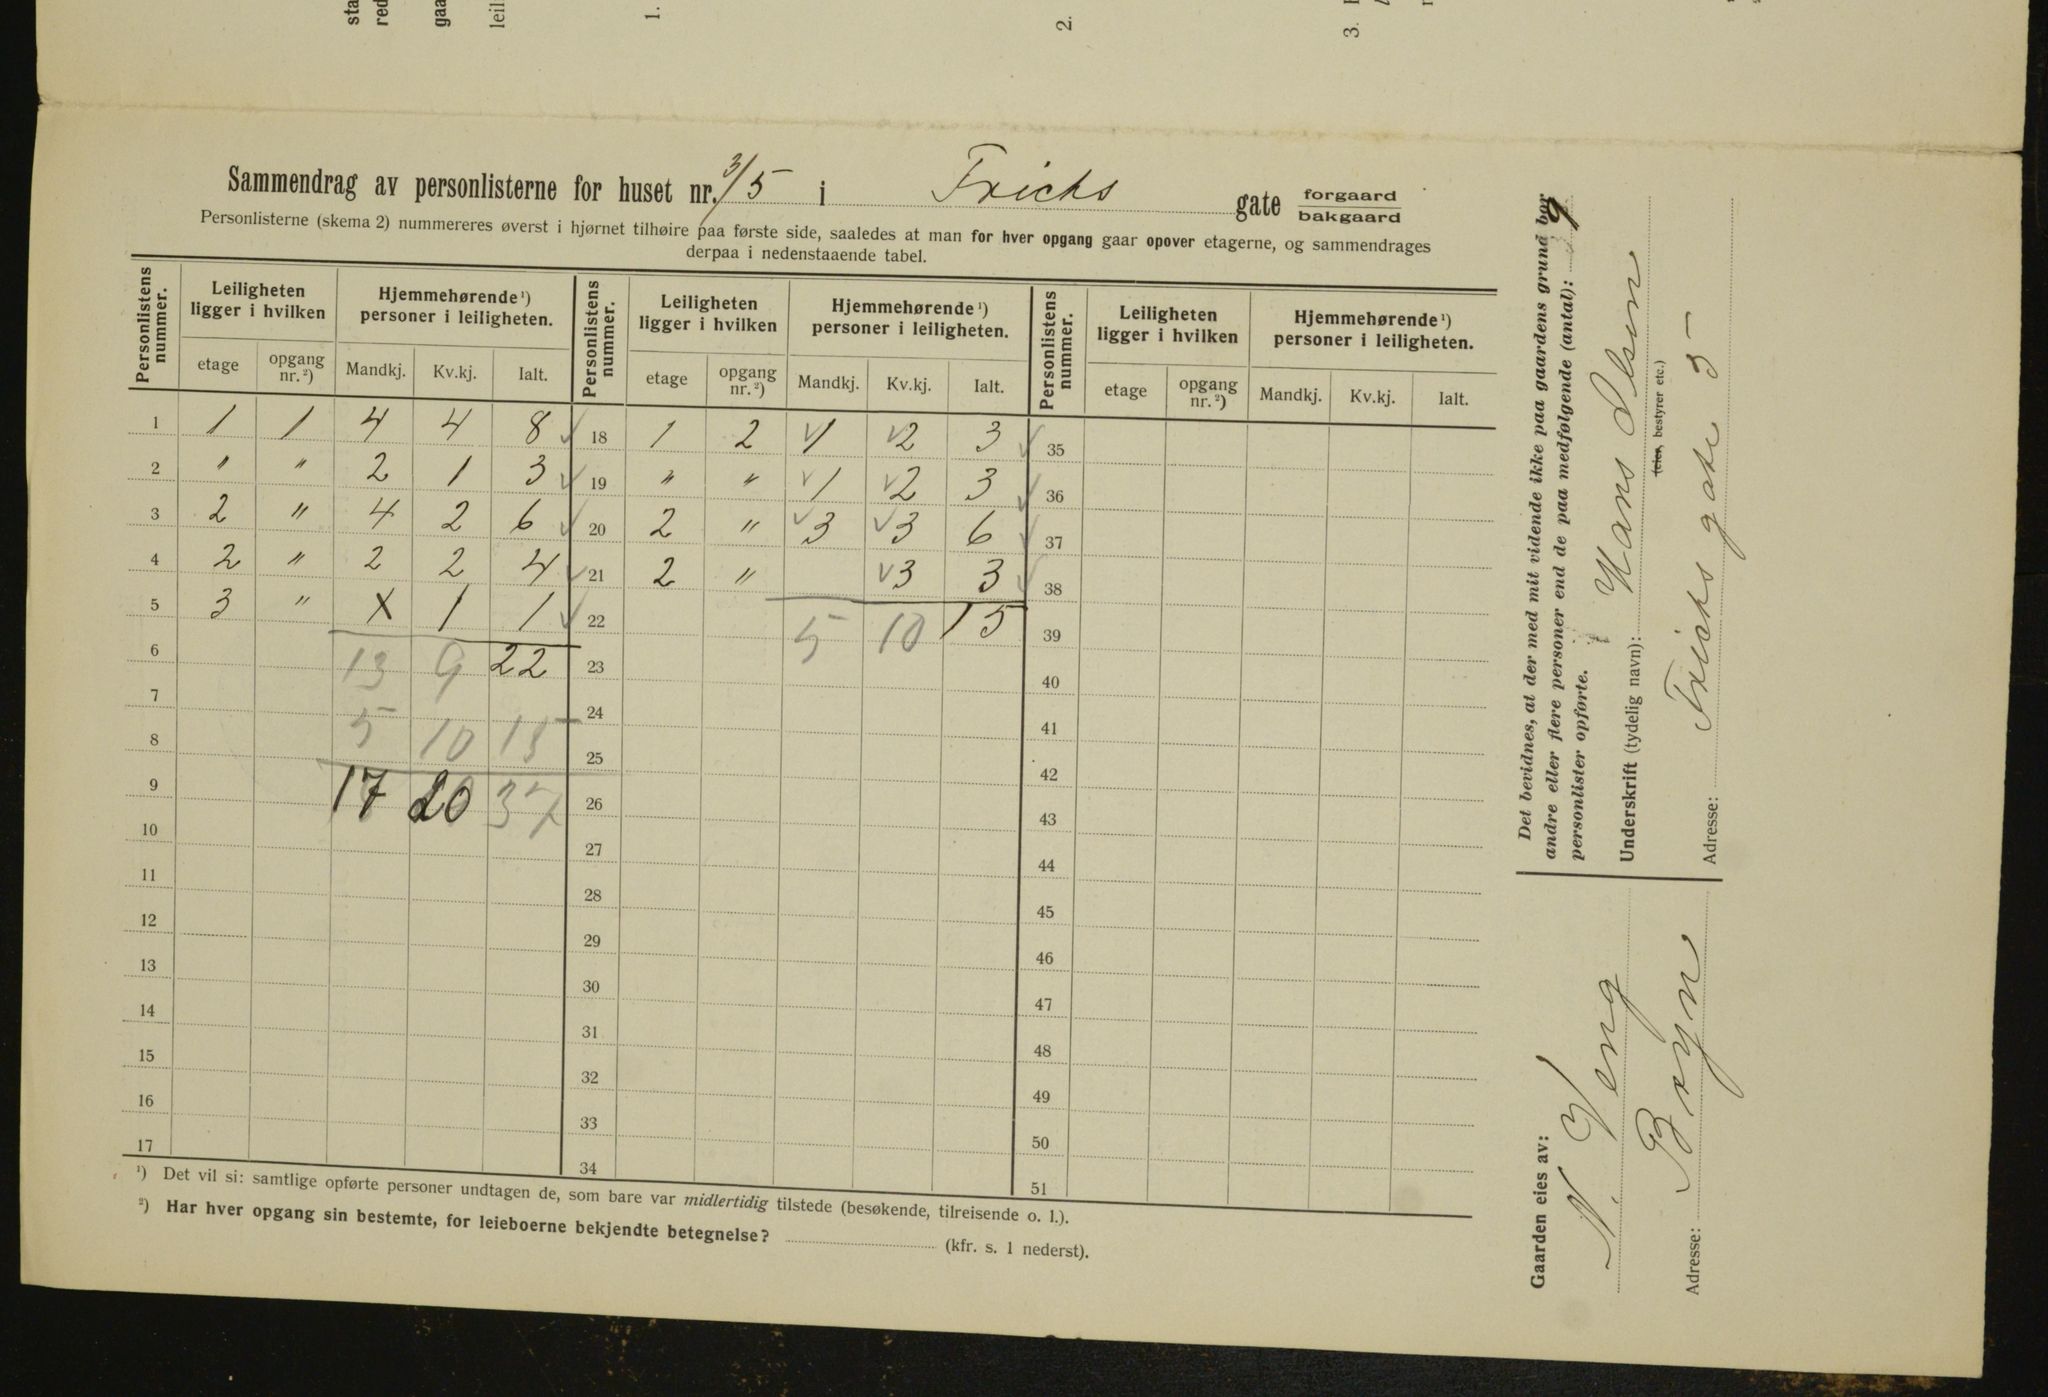 sta
red
gaa
leil
1.
2.
3.
Sammendrag av personlisterne for huset nr. 3/5 i Frichs gate forgaard bakgaard
Personlisterne (skema 2) nummereres øverst i hjørnet tilhøire paa første side, saaledes at man for hver opgang gaar opover etagerne, og sammendrages
derpaa i nedenstaaende tabel.
Personlistens nummer. Leiligheten ligger i hvilken Hjemmehørende¹) personer i leiligheten. Personlistens nummer. Leiligheten ligger i hvilken Hjemmehørende¹) personer i leiligheten. Personlistens nummer. Leiligheten ligger i hvilken Hjemmehørende¹) personer i leiligheten.
etage opgang nr.²) Mandkj. Kv.kj. Ialt. etage opgang nr.²) Mandkj. Kv.kj. Ialt. etage opgang nr.²) Mandkj. Kv.kj. Ialt.
1 1 1 4 4 8 18 1 2 1 2 3 35
2 " " 2 1 3 19 " " 1 2 3 36
3 2 " 4 2 6 20 2 " 3 3 6 37
4 2 " 2 2 4 21 2 " 3 3 38
5 3 " X 1 1 22 5 10 15 39
6 13 9 22 23 40
7 5 10 15 24 41
8 25 42
9 17 20 37 26 43
10 27 44
11 28 45
12 29 46
13 30 47
14 31 48
15 32 49
16 33 50
17 34 51
¹) Det vil si: samtlige opførte personer undtagen de, som bare var midlertidig tilstede (besøkende, tilreisende o. l.).
²) Har hver opgang sin bestemte, for leieboerne bekjendte betegnelse? (kfr. s. 1 nederst).
Det bevidnes, at der med mit vidende ikke paa gaardens grund bor
andre eller flere personer end de paa medfølgende (antal): 9
personlister opførte.
Underskrift (tydelig navn): Hans Olsen
(eier, bestyrer etc.)
Adresse: Frichs gate 5
Gaarden eies av:
N. Veng
Adresse: Bryn